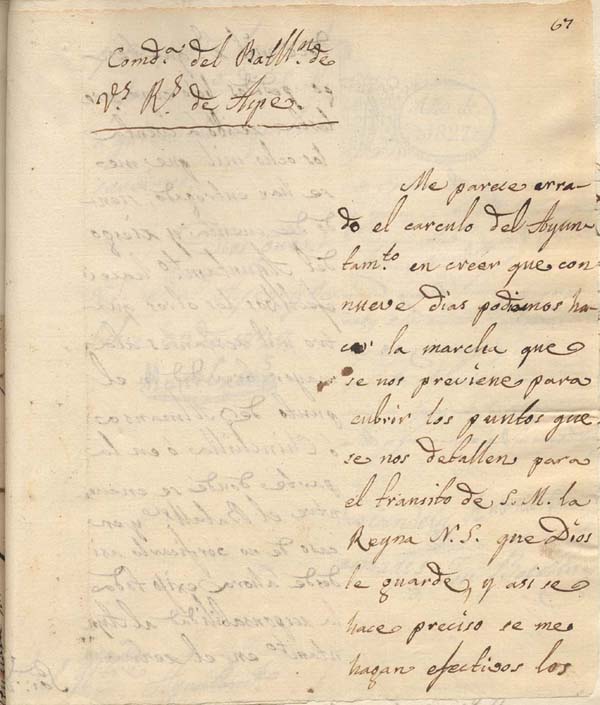 67
Comd.ª del Batll.ⁿ de
V.s R.s de Aspe.
Me parece erra-
do el carculo del Ayun-
tam.to en creer que con
nueve dias podiamos ha-
cer la marcha que
se nos previene para
cubrir los puntos que
se nos detallen para
el transito de S. M. la
Reyna N. S. que Dios
le guarde, y asi se
hace preciso se me
hagan efectivos los